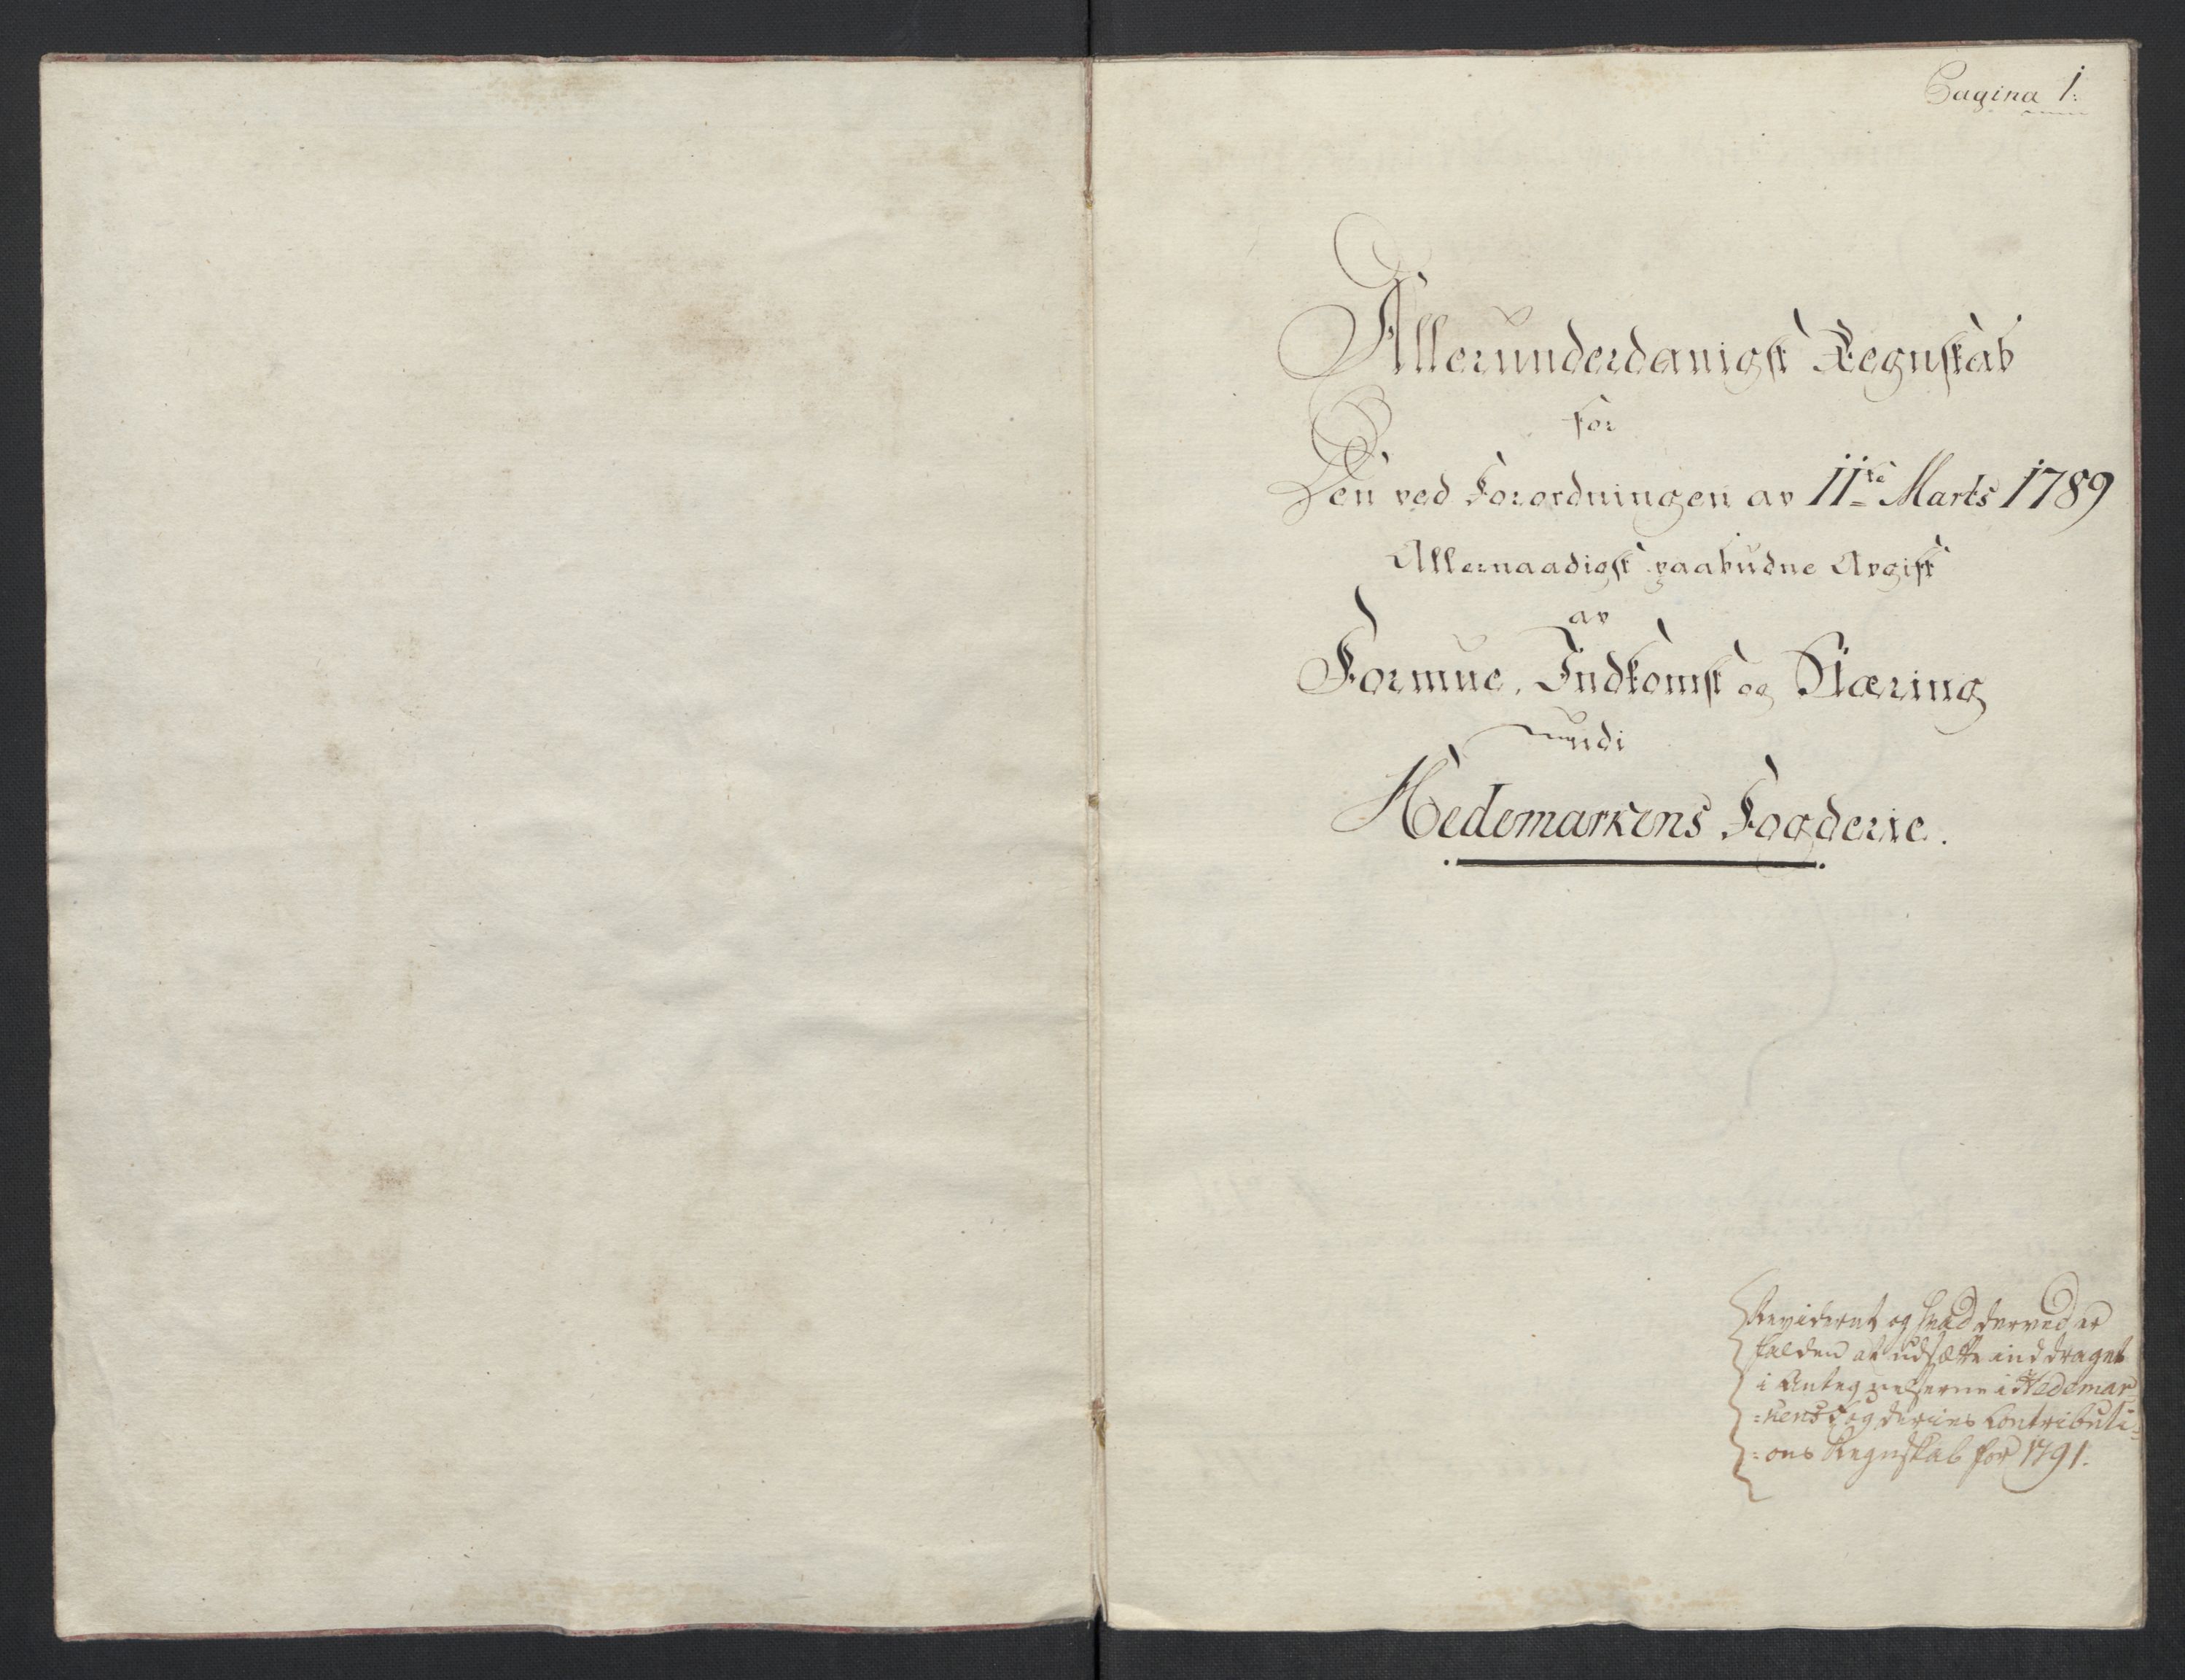 Pagina 1:
Allerunderdanigst Regnskab
for
Den ved Forordningen av 11te Marts 1789
Allernaadigst paabudne Avgift
av
Formue, Indkomst og Næring
udi
Hedemarkens Fogderie.
Revideret og hvad derved er
falden at udsætte inddraget
i Antegnelserne i Hedemar-
:kens Fogderies Contributi:
:ons Regnskab for 1791.